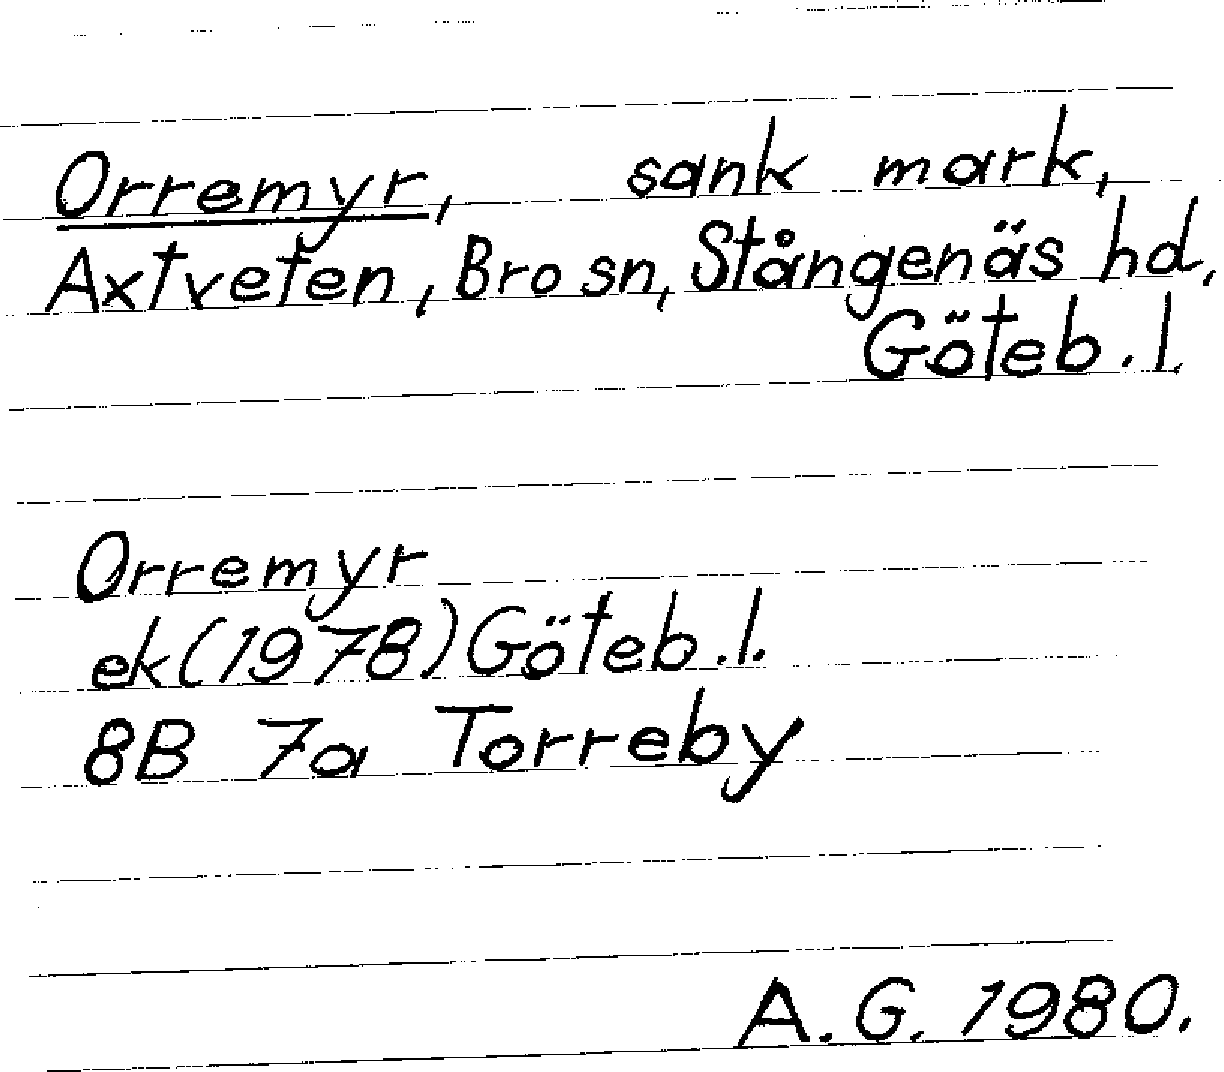 Orremyr, sank mark,
Axtveten, Bro sn, Stångenäs hd,
Göteb. l.
Orremyr
ek (1978) Göteb. l.
8B 7a Torreby
A. G. 1980.